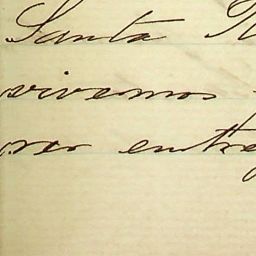 Santa
vivemos
por entre